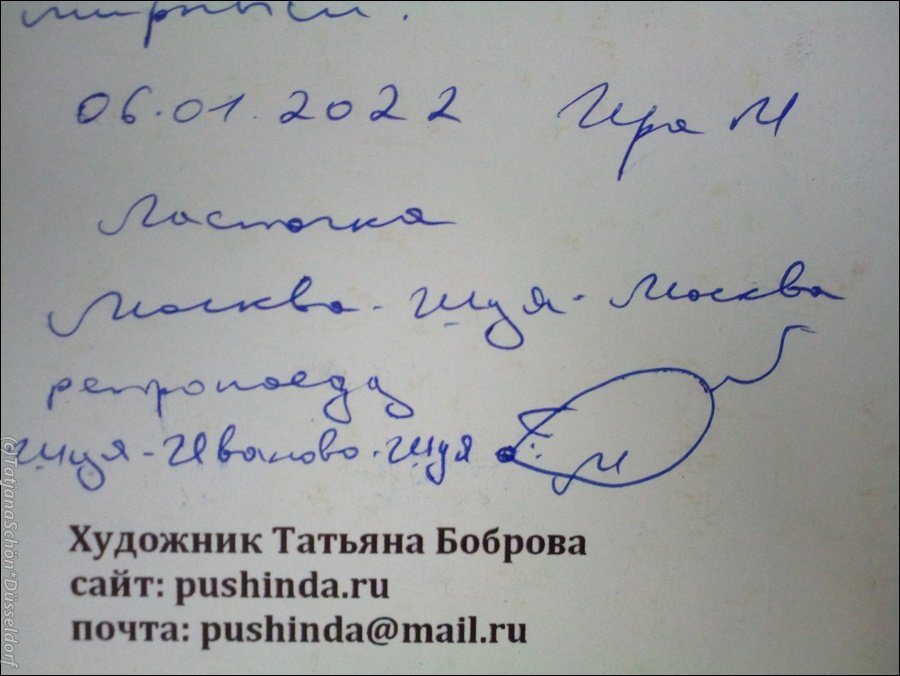 мирных.
06.01.2022 Ира М
Ласточка
Москва - Шуя - Москва
ретропоезд
Шуя - Иваново - Шуя
Художник Татьяна Боброва
сайт: pushinda.ru
почта: pushinda@mail.ru
(c)TatjanaSchön*Düsseldorf